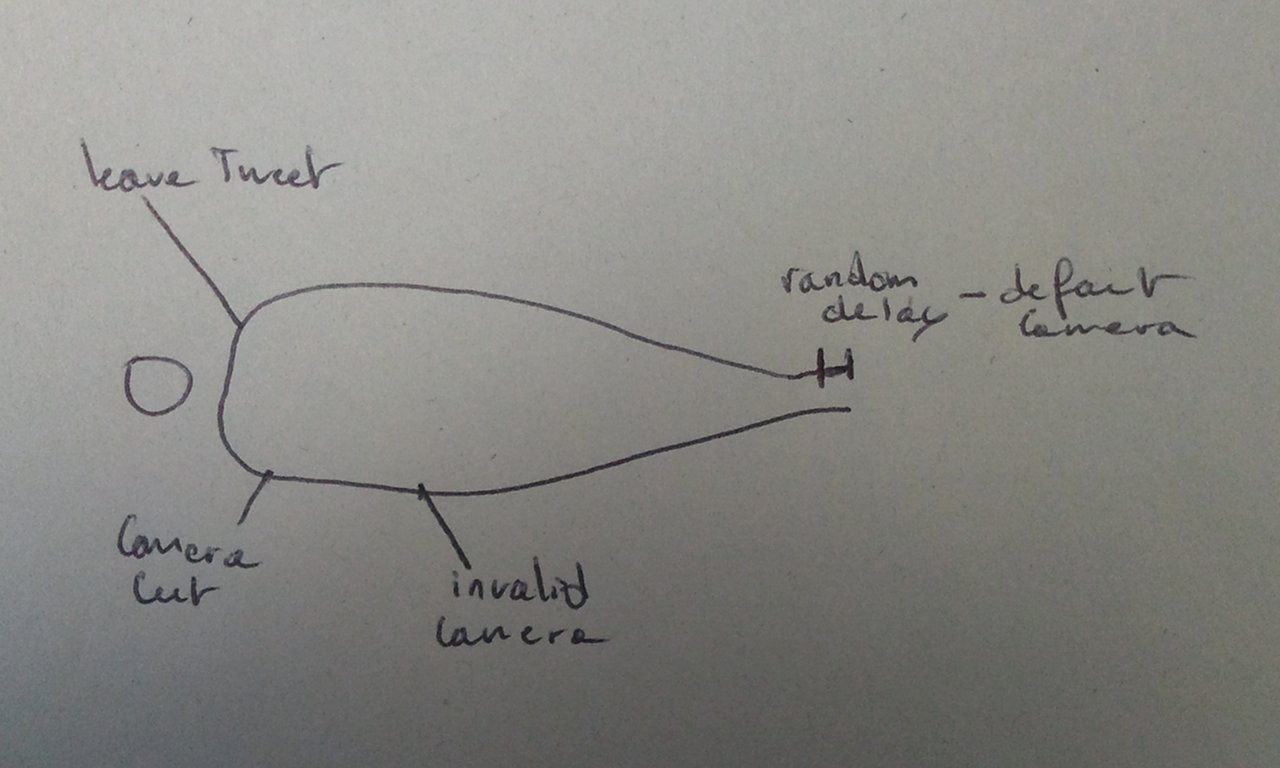 leave Tweet
random
delay - defailt
Camera
Camera
Cut
invalid
Camera